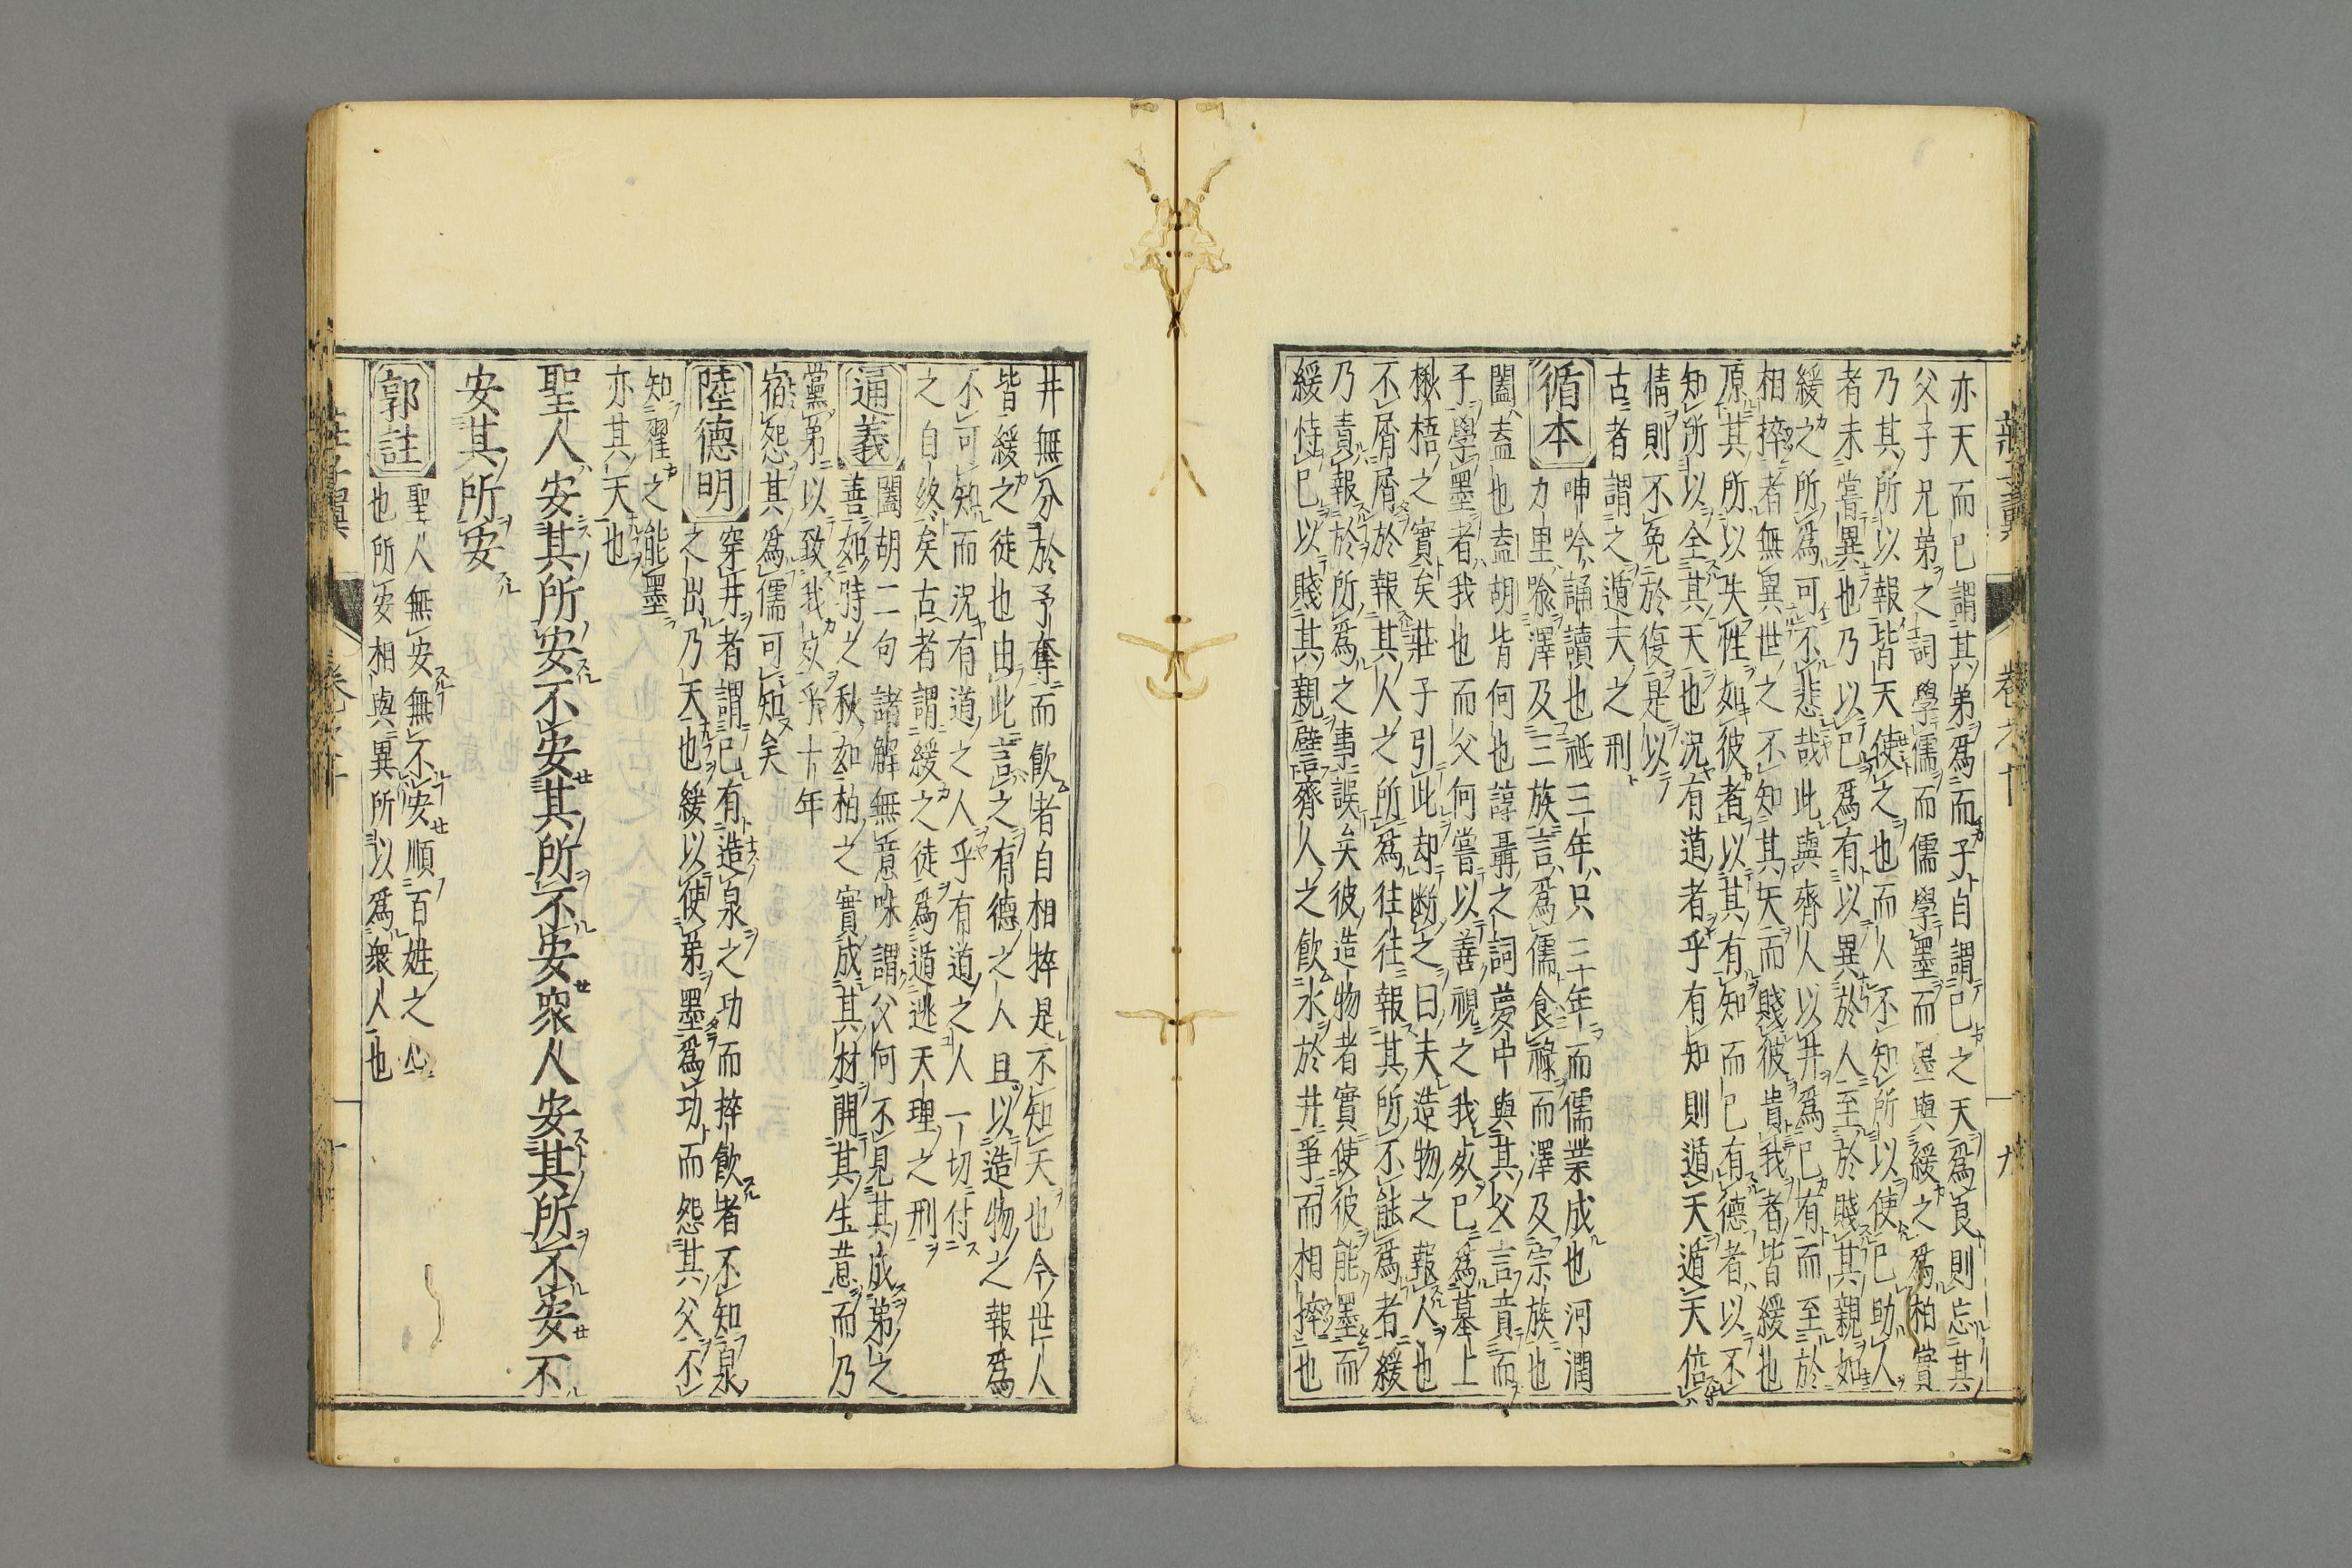 亦天而已謂其弟爲而子自謂己之天爲良則忘其
父子兄弟之詞學儒而儒學墨而墨與緩之爲柏實
乃其所以報皆天使之也而人不知所以使己助人
者未嘗異也乃以己爲有以異於人至於賤其親如
緩之所爲可不悲哉此與齊人以井爲己有而至於
相捽者無異世之不知其天而賤彼貴我者皆緩也
原其所以失性如彼者以其有知而已有德者以不
知所以全其天也況有道者乎有知則遁天遁天倍
情則不免於復是以
古者謂之遁天之刑
循本
呻吟誦讀也祇三年只三年而儒業成也河潤
九里喩澤及三族言爲儒食祿而澤及宗族也
闔盍也盍胡皆何也諄聶之詞夢中與其父言音而
子學墨者我也而父何嘗以善視之我死已爲墓上
楸梧之實矣莊子引此却斷之曰夫造物之報人也
不屑屑於報其人之所爲往往報其所不能爲者緩
乃責報於所爲之事誤矣彼造物者實使彼能墨而
緩恃己以賤其親譬齊人之飲水於井爭而相捽也
莊子翼 卷之十 九
井無分於予奪而飲者自相捽是不知天也今世人
皆緩之徒也由此言之有德之人且以造物之報爲
不可知而況有道之人乎有道之人一切付
之自終矣古者謂緩之徒爲遁逃天理之刑
通義
闔胡二句諸解無意味謂父何不見其成弟之
善如時之秋如柏之實成其材開其生意而乃
黨弟以致我父乎十年
宿怨其爲儒可知矣
陸德明
穿井者謂己有造泉之功而捽飲者不知泉
之出乃天也緩以使弟墨爲功而怨其父不
知翟之能墨
亦其天也
聖人安其所安不安其所不安衆人安其所不安不
安其所安
郭註
聖人無安無不安順百姓之心
也所安相與異所以爲衆人也